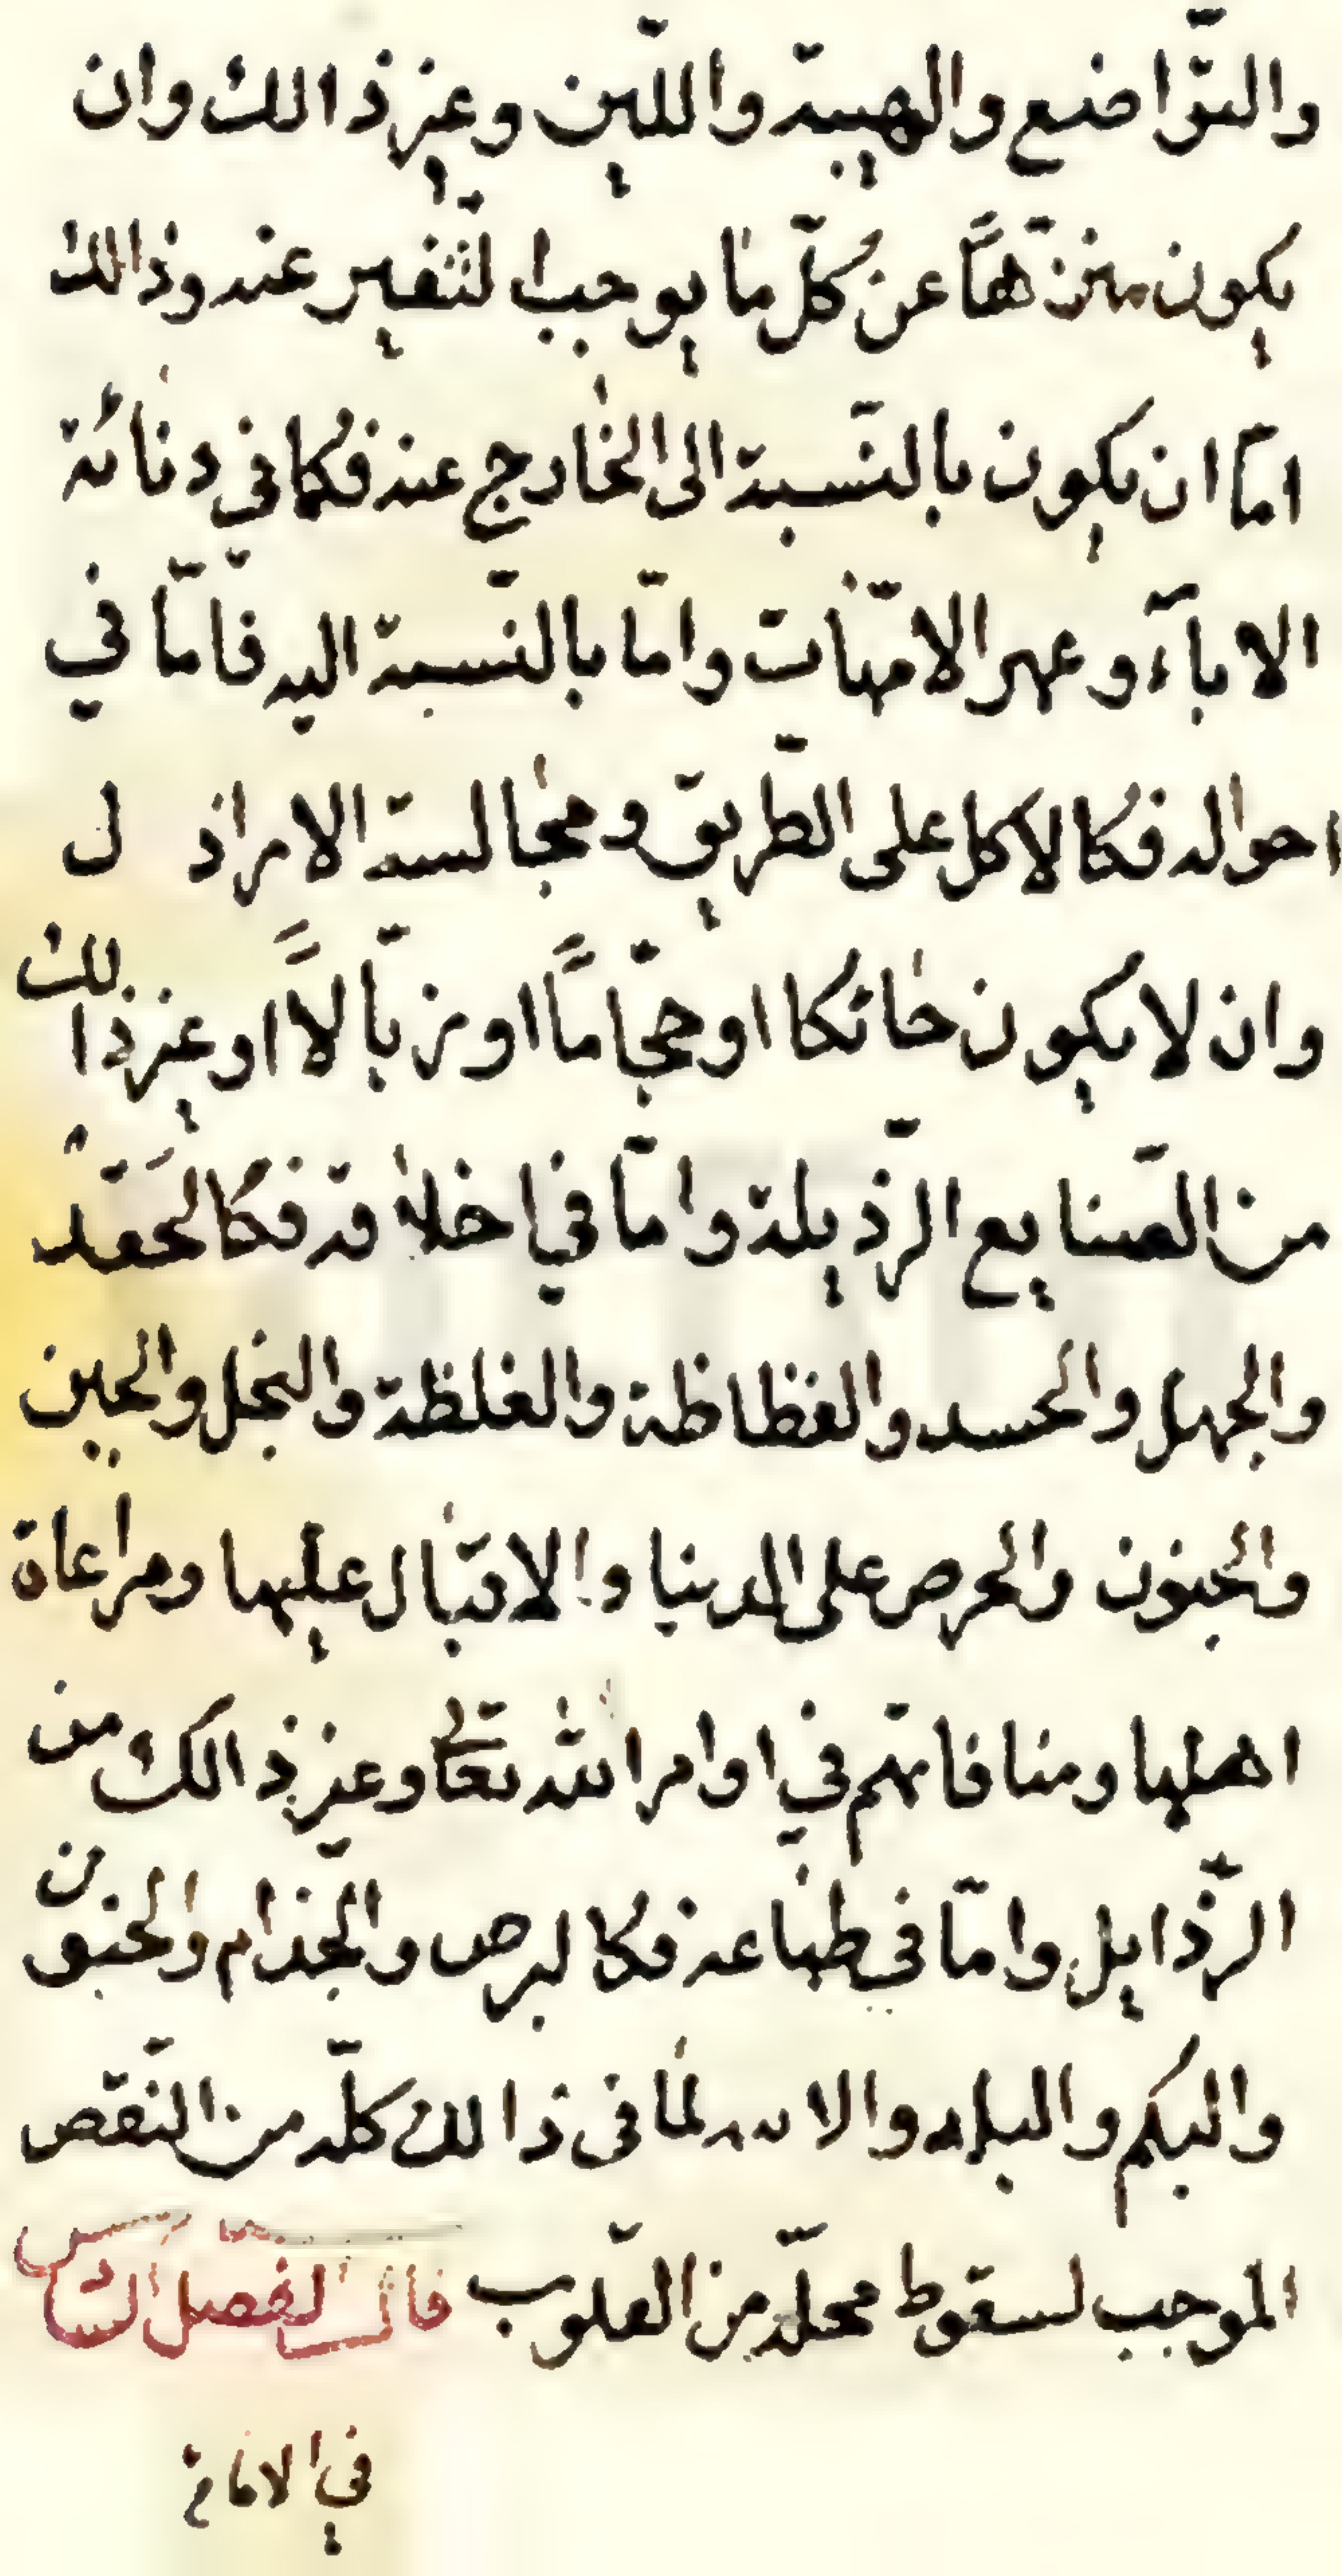 والتّواضع والهيبة واللّين وغير ذالك وان
يكون منزّهاً عن كلّ ما يوجب التّنفير عنه وذالك
امّا ان يكون بالنّسبة الى الخارج عنه فكما في دنائة
الاباۤء وعهر الامّهات وامّا بالنّسبة اليه فامّا في
احواله فكالاكل على الطّريق ومجالسة الاراذل
وان لا يكون حائكا او حجّاماً او زبّالاً او غير ذالك
من الصّنايع الرّذيلة وامّا في اخلاقه فكالحَقَد
والجهل والحسد والفظاظة والغلظة والبخل والجبن
والجنون والحرص على الدنيا والاقبال عليها ومراعاة
اهلها ومنافاتهم في اوامر الله تعالى وغير ذالك من
الرّذايل وامّا في طباعه فكالبرص والجذام والجنون
والبكم والبله لما في ذالك كلّه من النّقص
الموجب لسقوط محلّه من القلوب الفصل
في الامامة